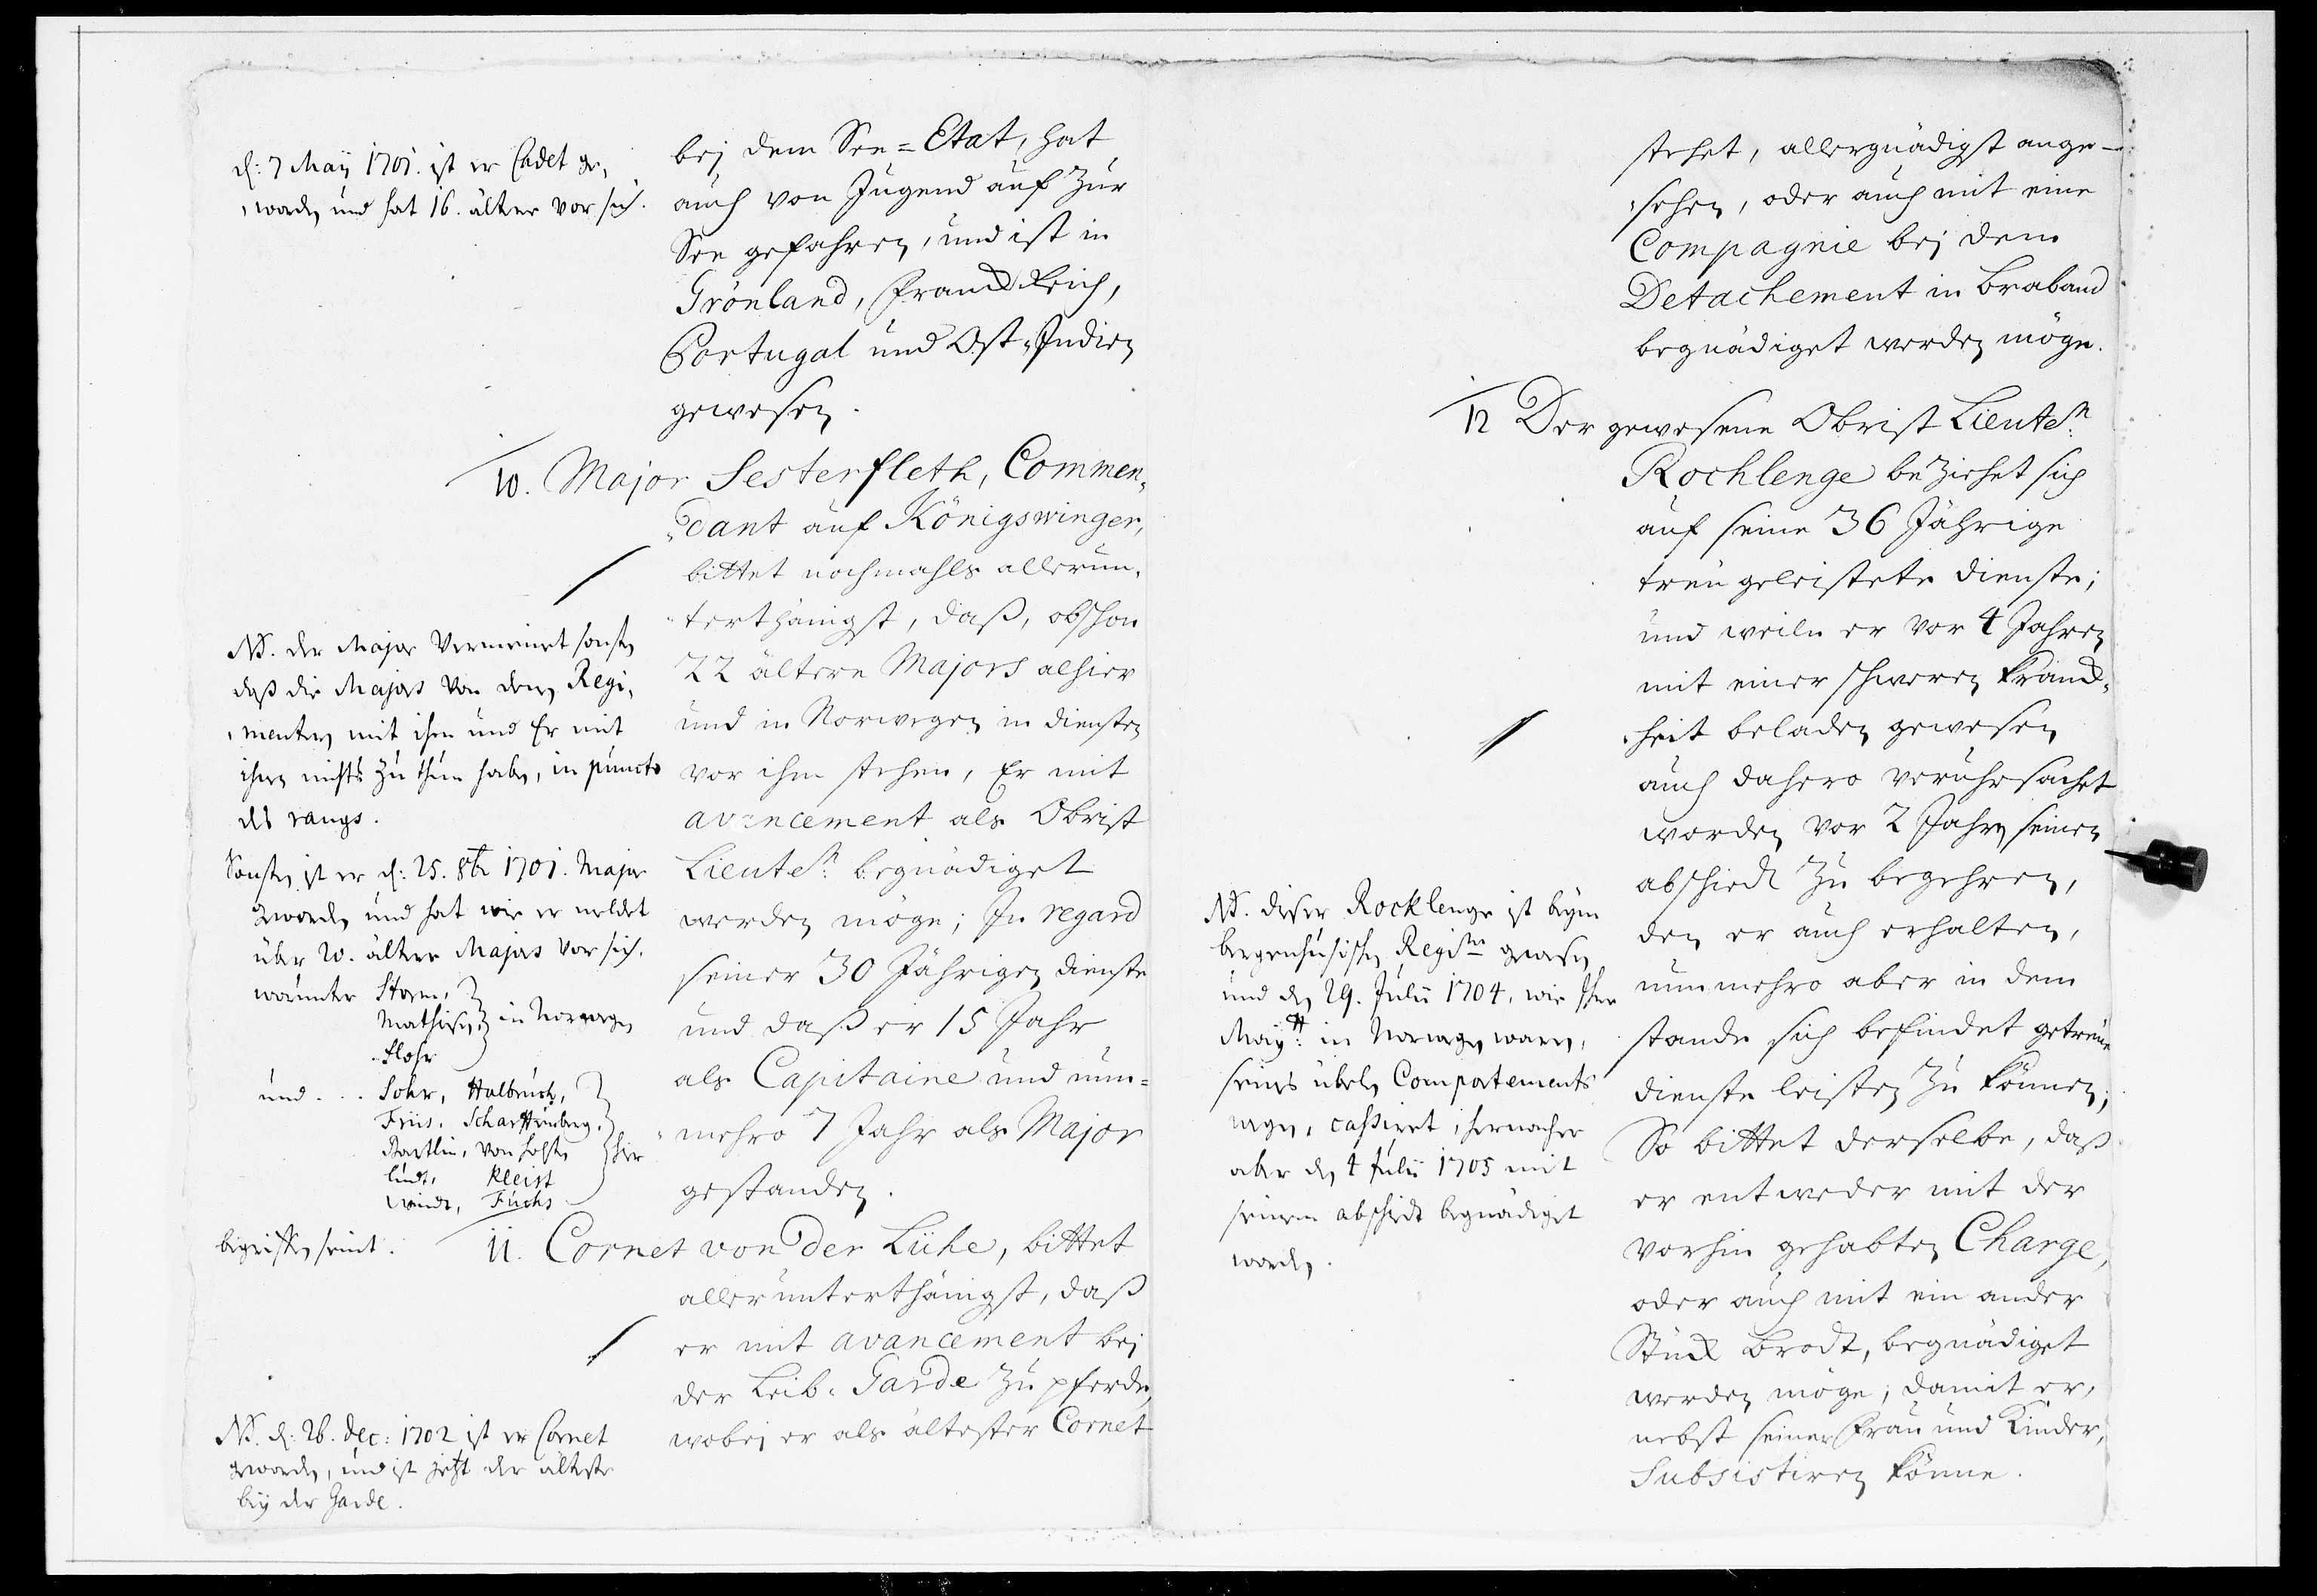 d: 7 Maÿ 1701. ist er Cadet ge„
„worden und hat 16. ältere vor sich.
bej dem See=Etat, hat
auch von Jugend auf zur
See gefahren, und ist in
Grönland, Franckreich,
Portugal und Ost„Indien
gewesen.
10. Major Sesterfleth, Commen„
„dant auf Königswinger,
bittet nochmahls allerun„
„terthänigst, daß, obschon
22 ältere Majors alhier
und in Norwegen in diensten
vor ihm stehen, Er mit
avencement als Obrist
Lieutet: begnädiget
werden möge; In regard
seiner 30 Jährigen dienste
und daß er 15 Jahr
als Capitaine und nun=
„mehro 7 Jahr als Major
gestanden.
NB. der Major vermeinet sonsten
daß die Majors von denen Regi„
„mentern mit ihm und Er mit
ihnen nichts zu thun haben, in puncto
des rangs.
Sonsten ist er d: 25. 8br 1701. Major
geworden und hat wie er meldet
über 20. ältere Majors vor sich.
worunter Storm,
Mathisen, in Norwegen
Flohr
und... Sohr, Halbrück,
Friis, Scharffenberg,
Bartlin, von Holsten hier
Lindt, Kleist
Windt, Fuchs
begriffen seint.
11. Cornet von der Lühe, bittet
allerunterthänigst, daß
er mit avancement bej
der Leib„Garde zu pferde,
wobej er als ältester Cornet
NB. d: 26. Dec: 1702 ist er Cornet
geworden, und ist jetzt der älteste
beÿ der Garde.
stehet, allergnädigst ange-
„sehen, oder auch mit eine
Compagnie bej dem
Detachement in Braband
begnädiget werden möge.
12 Der gewesene Obrist Lieutet:
Rochlenge beziehet sich
auf seine 36 Jährige
treu geleistete dienste;
und weiln er vor 4 Jahren
mit einer schweren Kranck„
„heit beladen gewesen
auch dahero veruhrsachet
worden vor 2 Jahren seinen
abschiedt zu begehren,
den er auch erhalten,
nunmehro aber in dem
stande sich befindet getreue
dienste leisten zu können;
So bittet derselbe, daß
er entweder mit der
vorhin gehabten Charge,
oder auch mit ein ander
Stück Brodt, begnädiget
werden möge; damit er,
nebst seiner Frau und Kinder,
Subsistiren könne.
NB. dieser Rocklenge ist beym
bergenhusischen Regimt gewesen
und den 29. Julii 1704. wie Ihro
Maÿtt: in Norwegen waren,
seines übelen Comportements
wegen, cassieret, hernacher
aber den 4 Julii 1705 mit
seinem abschiedt begnädiget
worden.